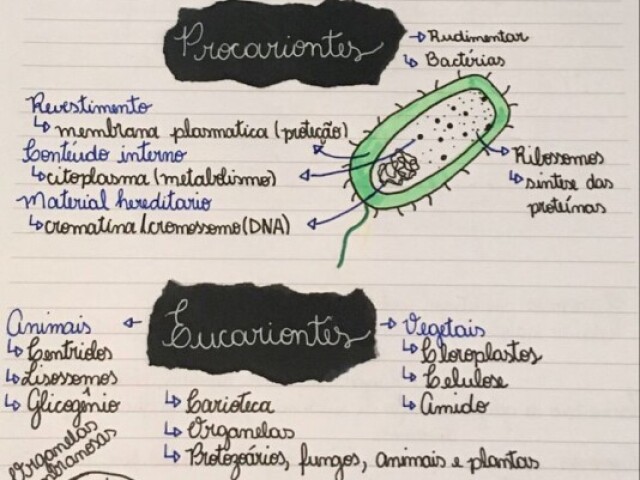 Procariontes
→ Rudimentar
↳ Bactérias
Revestimento
↳ membrana plasmatica (proteção)
Conteúdo interno
↳ citoplasma (metabolismo)
Material hereditario
↳ cromatina/cromossomo (DNA)
Ribossomos
↳ síntese das
proteínas
Eucariontes
Animais
↳ Centríolos
↳ Lisossomos
↳ Glicogênio
Vegetais
↳ Cloroplastos
↳ Celulose
↳ Amido
↳ Carioteca
↳ Organelas
↳ Protozoários, fungos, animais e plantas
Organelas